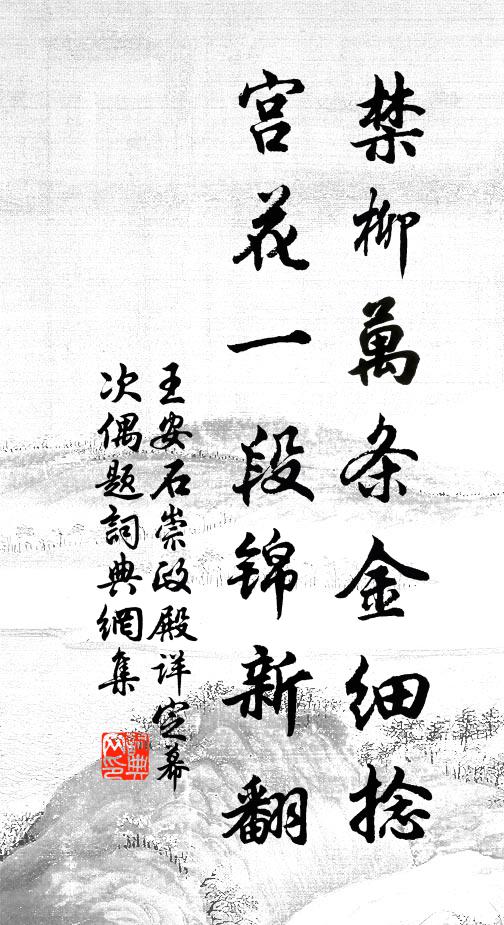 禁柳萬条金细捻
宫花一段锦新翻
王安石崇政殿详定幕
次偶题詞典網集